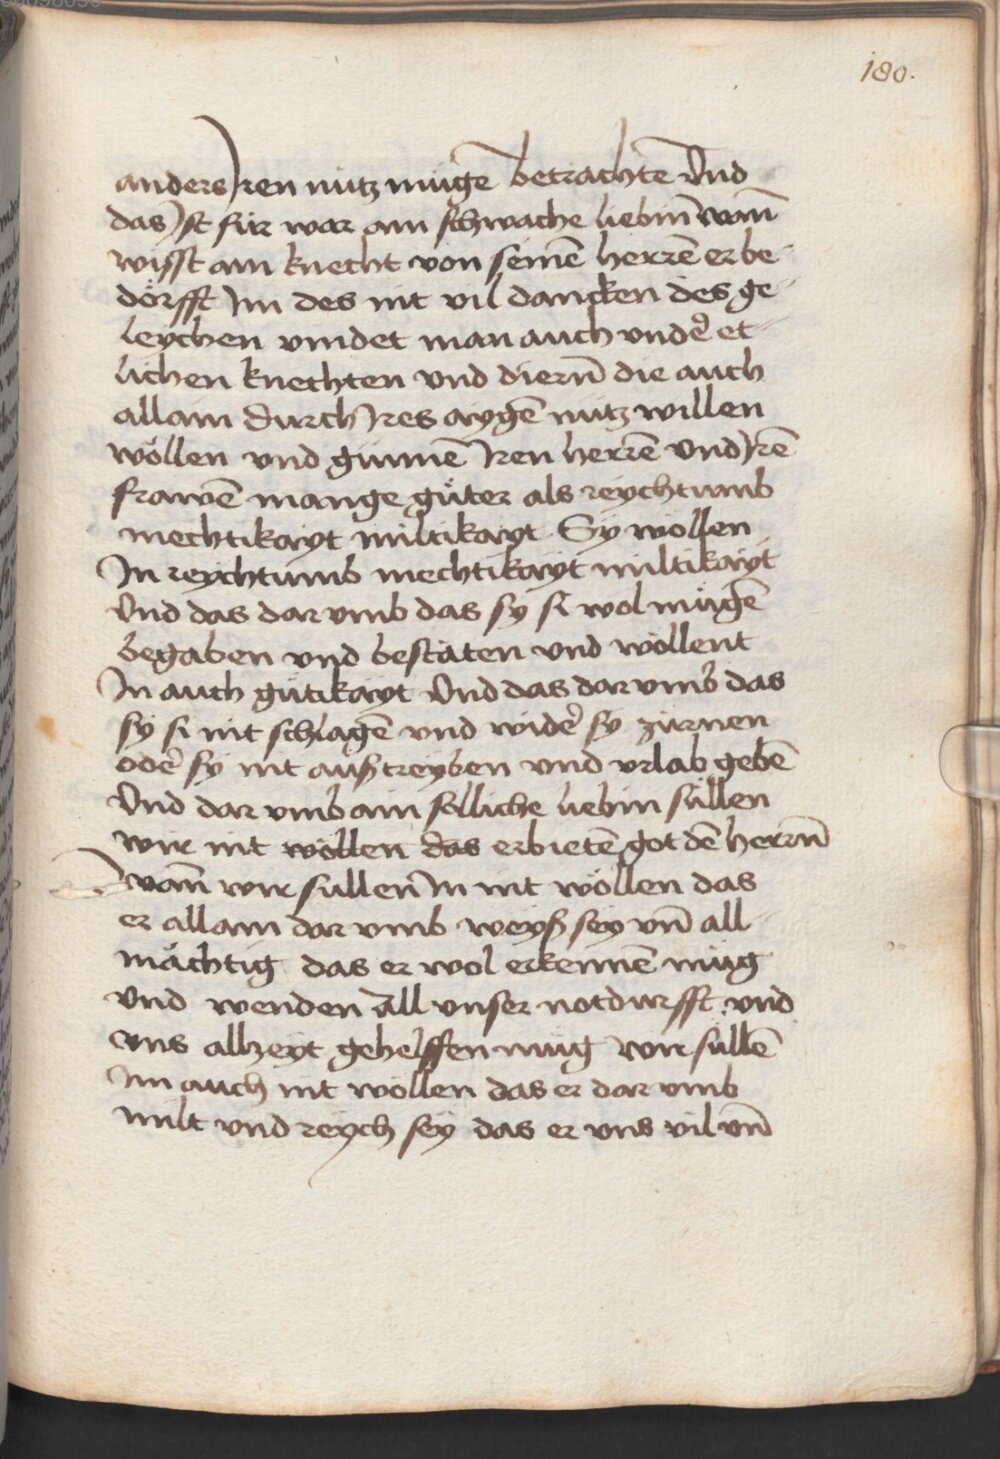 180.
anders Iren nutz mügē betrachtē Vnd
das Ist für war ain schwache liebin wan̄
wisst ain knecht von seinē herrē er be-
dörfft Im des nit vil dancken des ge-
leychen vindet man auch vnder et-
lichen knechten vnd diern̄ die auch
allain durch Ires aygē nutz willen
wöllen vnd günnē Iren herrē vnd Irē
frawē mange güter als reychtumb
mechtikayt miltikayt Sy wöllen
In reychtumb mechtikayt miltikayt
Vnd das dar vmb das sy si wol mügē
begaben vnd bestäten vnd wöllent
In auch gütikayt Vnd das dar vmb das
sy si nit schlagē vnd wider sy zürnen
oder sy nit auß treyben vnd vrlab gebē
Vnd dar vmb ain sölliche liebin süllen
wir nit wöllen das erbietē got dē herrn̄
wan̄ wir süllen In nit wöllen das
er allain dar vmb weyß sey vn̄ all-
mächtig das er wol erkennē müg
vnd wenden all vnser notdurfft vnd
vns allzeyt gehelffen müg wir süllē
Im auch nit wöllen das er dar vmb
milt vnd reych sey das er vns vil vn̄